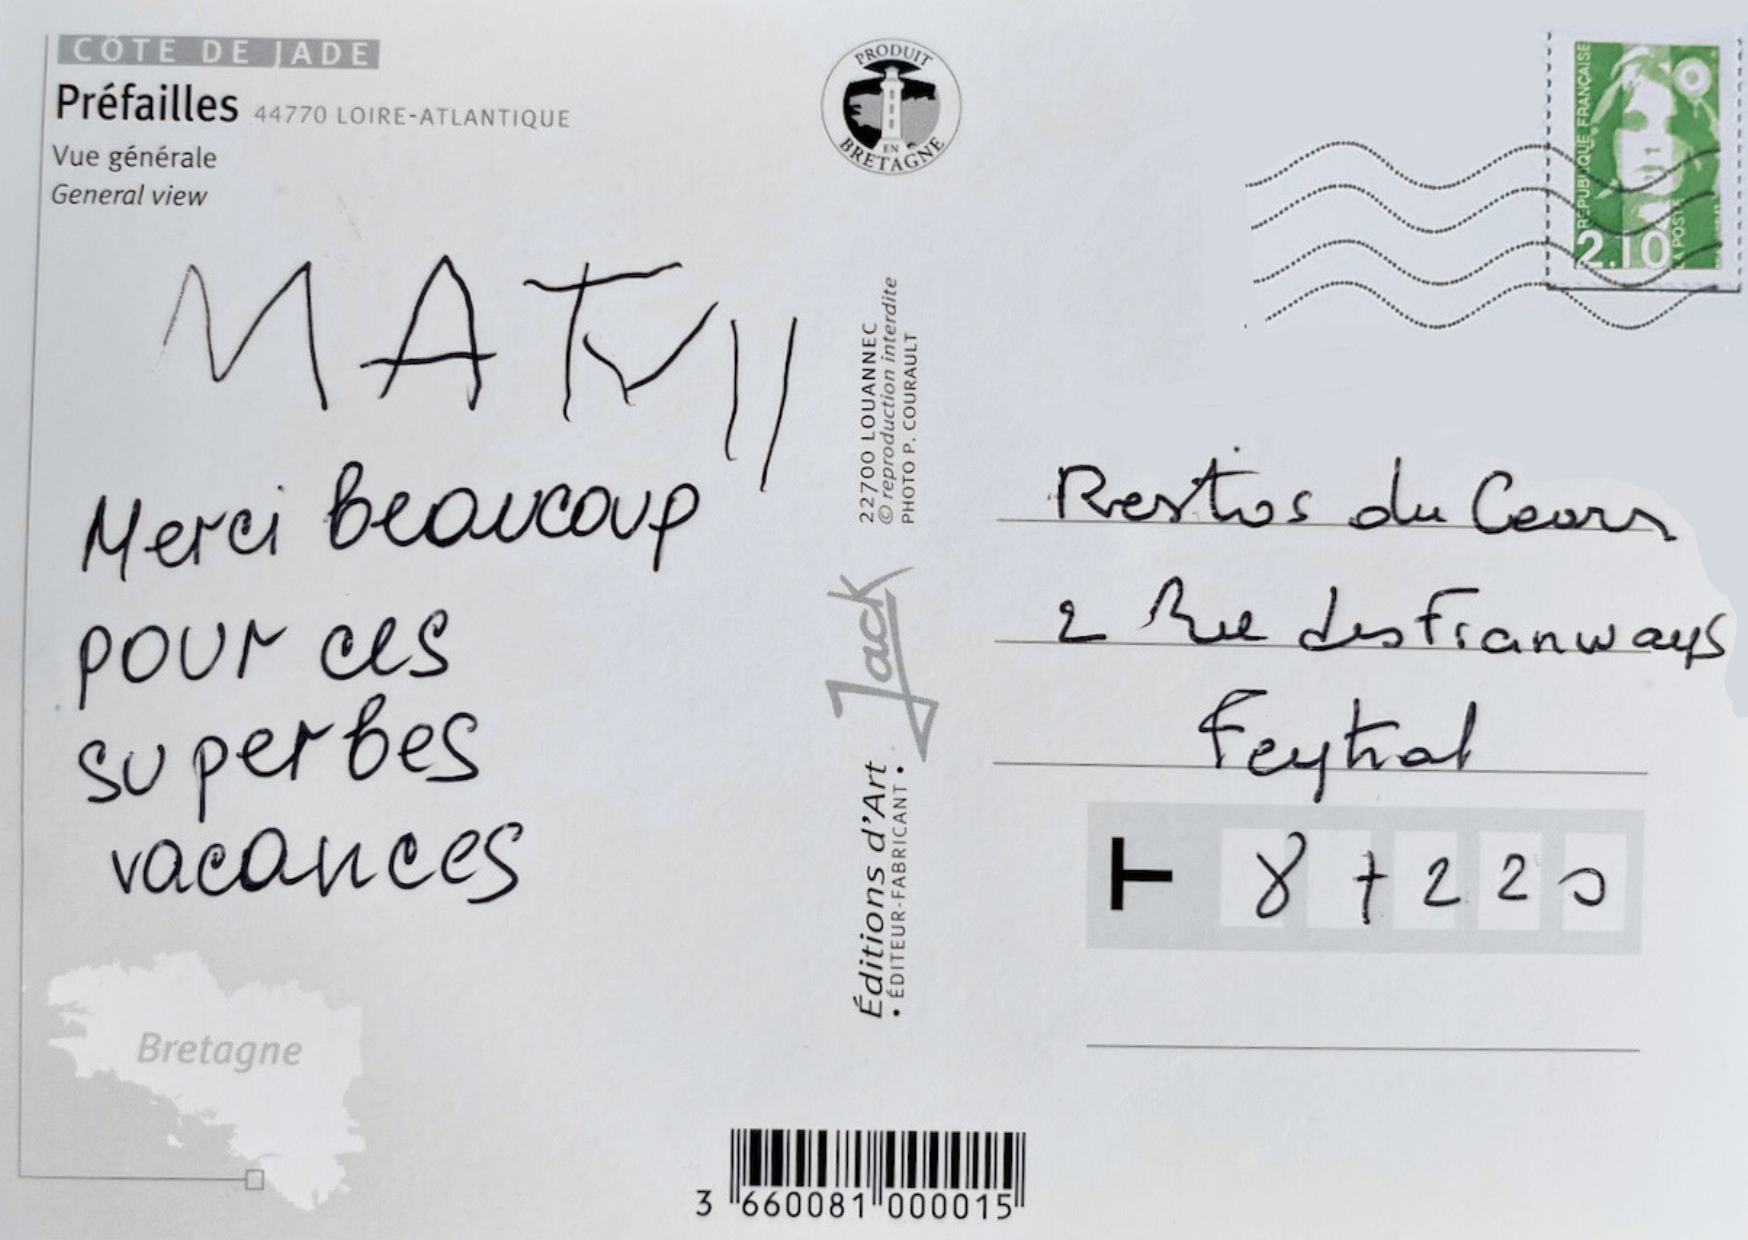 CÔTE DE JADE
Préfailles 44770 LOIRE-ATLANTIQUE
Vue générale
General view
MATVII
Merci beaucoup
pour ces
superbes
vacances
Bretagne
PRODUIT
EN
BRETAGNE
22700 LOUANNEC
© reproduction interdite
PHOTO P. COURAULT
Jack
Éditions d'Art
• ÉDITEUR-FABRICANT •
3 660081 000015
RÉPUBLIQUE FRANÇAISE
LA POSTE
2.10
Restos du Coeurs
2 Rue des Tramways
Feytiat
87220